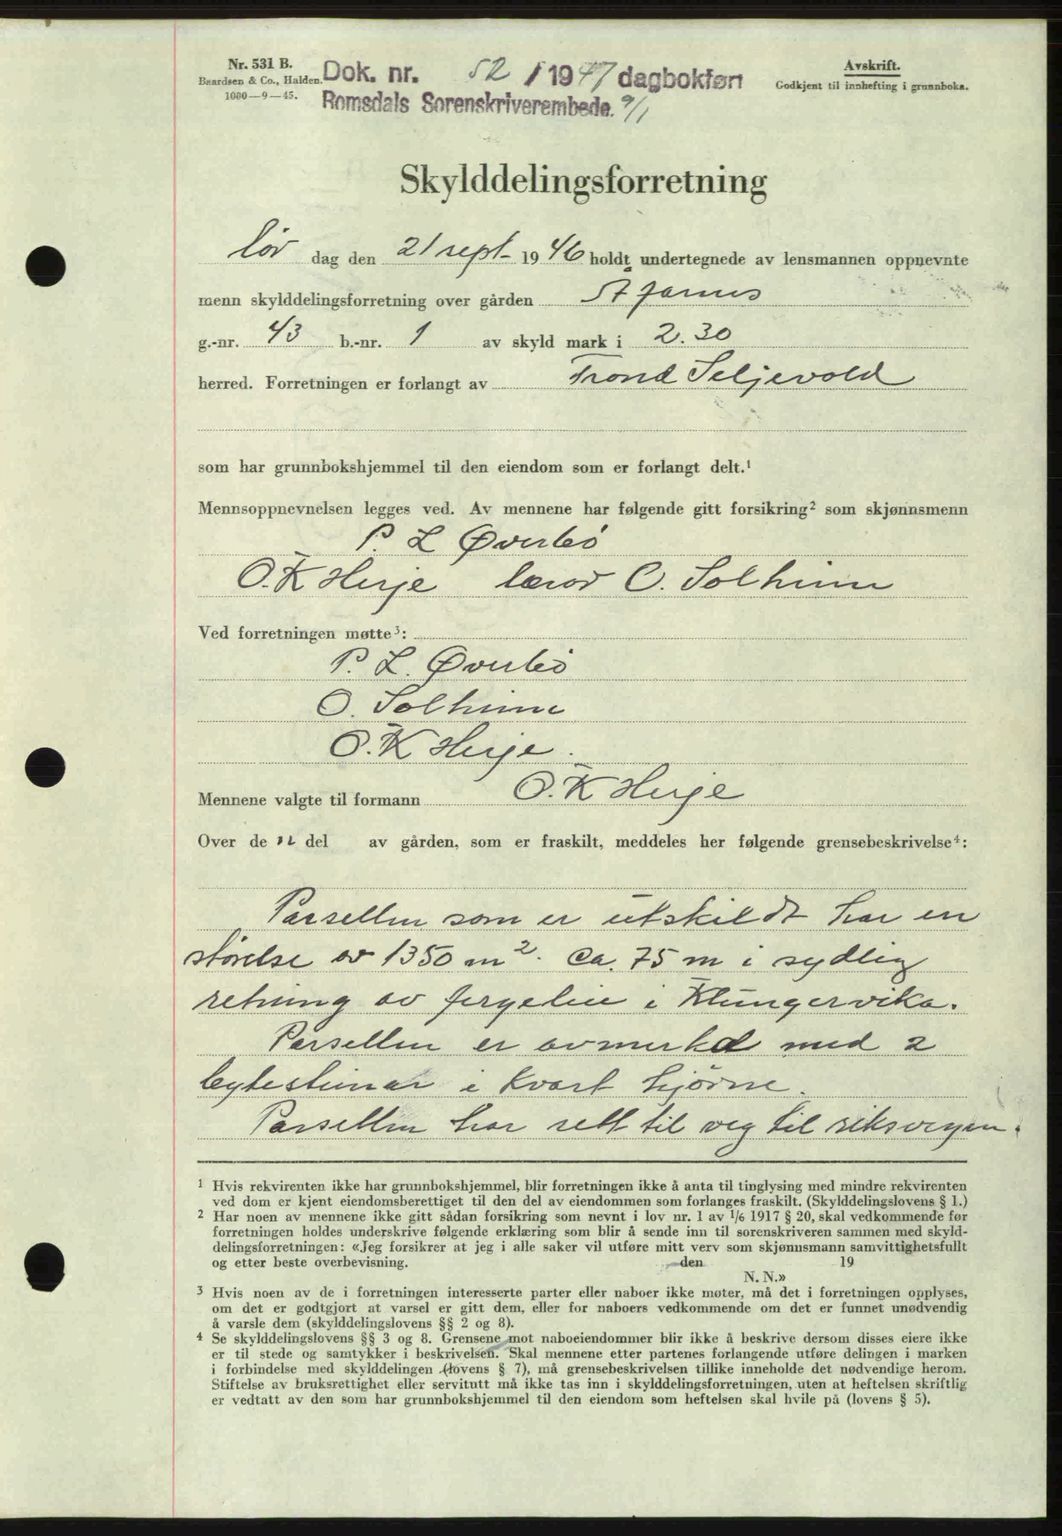 Nr. 531 B.
Baardsen & Co., Halden.
1000—9—45.
Dok. nr. 52 / 1947 dagbokført
Romsdals Sorenskriverembede. 9/1
Avskrift.
Godkjent til innhefting i grunnboka.
Skylddelingsforretning
Lør dag den 21 sept 1946 holdt undertegnede av lensmannen oppnevnte
menn skylddelingsforretning over gården
g.-nr. 43 b.-nr. 1 av skyld mark i 2.30
herred. Forretningen er forlangt av Trond Seljevold
som har grunnbokshjemmel til den eiendom som er forlangt delt.¹
Mennsoppnevnelsen legges ved. Av mennene har følgende gitt forsikring² som skjønnsmenn
P. L Øverbö
O. K Herje lærer O. Solheim
Ved forretningen møtte³:
P. L. Øverbö
O. Solheim
O. K Herje.
Mennene valgte til formann O. K Herje
Over de n del av gården, som er fraskilt, meddeles her følgende grensebeskrivelse⁴:
Parsellen som er utskildt har en
störelse av 1350 m². Ca. 75 m i sydlig
retning av fergeleie i Klungervika.
Parsellen er avmerkd med 2
bytesteinar i kvart hjörne.
Parsellen har rett til veg til riksvegen.
¹ Hvis rekvirenten ikke har grunnbokshjemmel, blir forretningen ikke å anta til tinglysing med mindre rekvirenten
ved dom er kjent eiendomsberettiget til den del av eiendommen som forlanges fraskilt. (Skylddelingslovens § 1.)
² Har noen av mennene ikke gitt sådan forsikring som nevnt i lov nr. 1 av 1/6 1917 § 20, skal vedkommende før
forretningen holdes underskrive følgende erklæring som blir å sende inn til sorenskriveren sammen med skyld-
delingsforretningen: «Jeg forsikrer at jeg i alle saker vil utføre mitt verv som skjønnsmann samvittighetsfullt
og etter beste overbevisning. den 19
N. N.»
³ Hvis noen av de i forretningen interesserte parter eller naboer ikke møter, må det i forretningen opplyses,
om det er godtgjort at varsel er gitt dem, eller for naboers vedkommende om det er funnet unødvendig
å varsle dem (skylddelingslovens §§ 2 og 8).
⁴ Se skylddelingslovens §§ 3 og 8. Grensene mot naboeiendommer blir ikke å beskrive dersom disses eiere ikke
er til stede og samtykker i beskrivelsen. Skal mennene etter partenes forlangende utføre delingen i marken
i forbindelse med skylddelingen (lovens § 7), må grensebeskrivelsen tillike inneholde det nødvendige herom.
Stiftelse av bruksrettighet eller servitutt må ikke tas inn i skylddelingsforretningen, uten at heftelsen skriftlig
er vedtatt av den som har grunnbokshjemmel til den eiendom som heftelsen skal hvile på (lovens § 5).